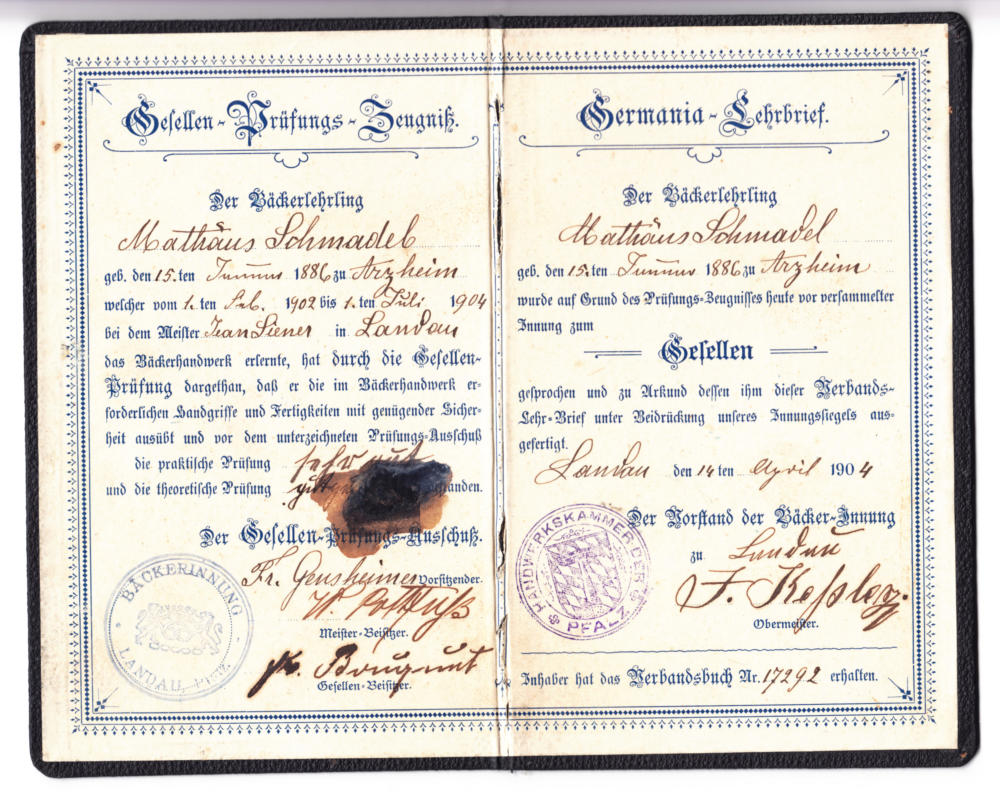 Gesellen-Prüfungs-Zeugniß.
Der Bäckerlehrling
Mathäus Schmadel
geb. den 15.ten Januar 1886 zu Arzheim
welcher vom 1. ten Feb. 1902 bis 1. ten Juli 1904
bei dem Meister Jean Siener in Landau
das Bäckerhandwerk erlernte, hat durch die Gesellen-
Prüfung dargethan, daß er die im Bäckerhandwerk er-
forderlichen Handgriffe und Fertigkeiten mit genügender Sicher-
heit ausübt und vor dem unterzeichneten Prüfungs-Ausschuß
die praktische Prüfung sehr gut
und die theoretische Prüfung gut standen.
Der Gesellen-Prüfungs-Ausschuß.
Fr. Gensheimer Vorsitzender.
Meister-Beisitzer.
Gesellen-Beisitzer.
BÄCKERINNUNG
LANDAU, PFALZ
Germania-Lehrbrief.
Der Bäckerlehrling
Mathäus Schmadel
geb. den 15.ten Januar 1886 zu Arzheim
wurde auf Grund des Prüfungs-Zeugnisses heute vor versammelter
Innung zum
Gesellen
gesprochen und zu Urkund dessen ihm dieser Verbands-
Lehr-Brief unter Beidrückung unseres Innungssiegels aus-
gefertigt.
Landau den 14 ten April 1904
Der Vorstand der Bäcker-Innung
zu Landau
F. Keßler
Obermeister.
HANDWERKSKAMMER DER
PFALZ
Inhaber hat das Verbandsbuch Nr. 17292 erhalten.